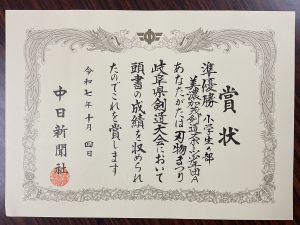 賞状
準優勝 小学生の部
美濃加茂剣道スポーツ少年団A
あなたがたは刃物まつり
岐阜県剣道大会において
頭書の成績を収められ
たのでこれを賞します
令和七年十月四日
中日新聞社